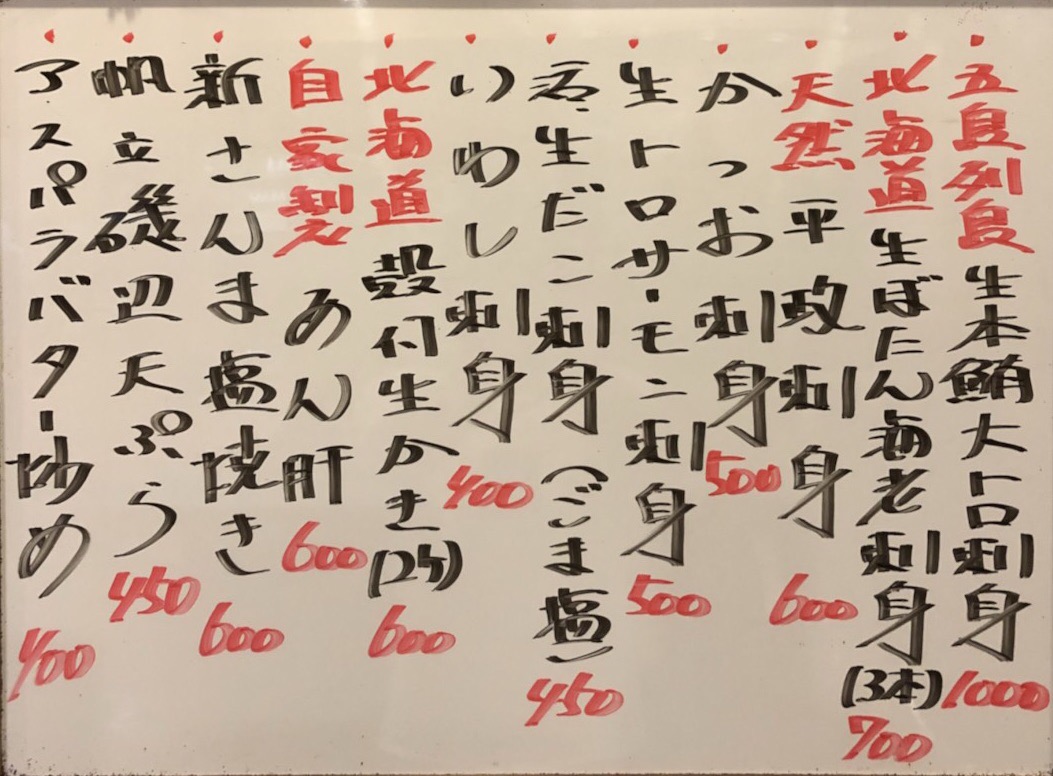 五島列島生本鮪大トロ刺身1000
北海道生ぼたん海老刺身(3本)700
天然平政刺身600
かつお刺身500
生トロサーモン刺身500
岩生だこ刺身(ごま塩)450
いわし刺身400
北海道殻付生かき(2ケ)600
自家製あん肝600
新さんま塩焼き600
帆立磯辺天ぷら450
アスパラバター炒め400